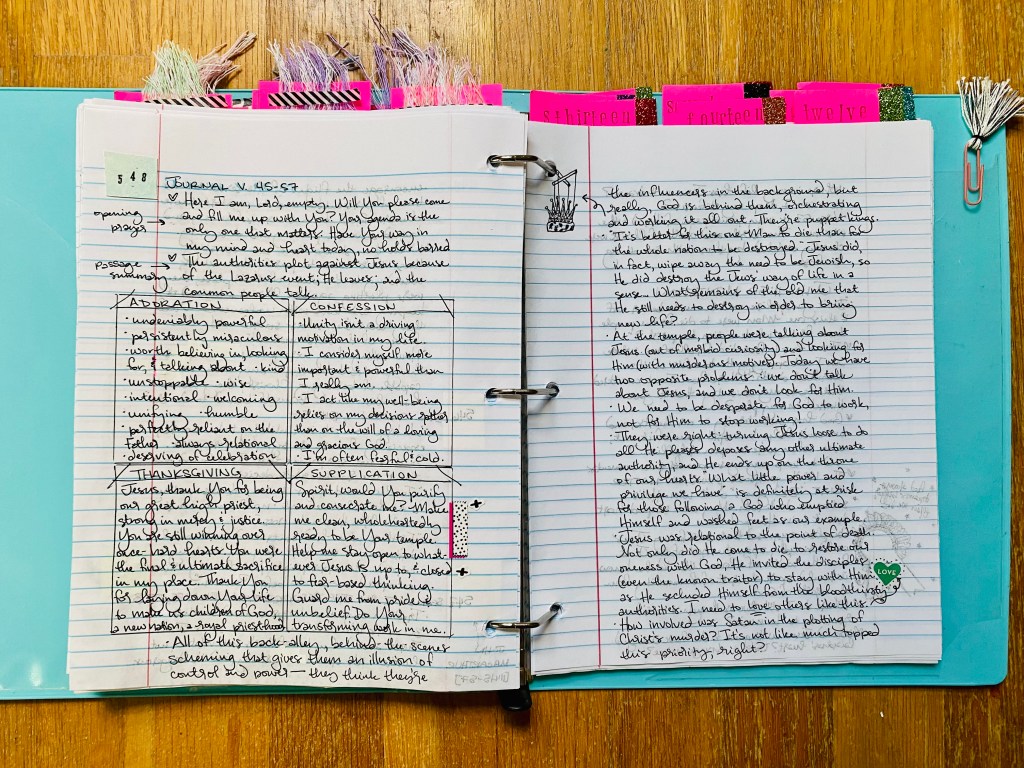 sthirteen
fourteen
twelve
548
JOURNAL V. 45-57
opening
prayer
Here I am, Lord, empty. Will You please come
and fill me up with You? Your agenda is the
only one that matters. Have Your way in
my mind and heart today, no holds barred
passage
summary
The authorities plot against Jesus because
of the Lazarus event, He leaves, and the
common people talk.
ADORATION
· undeniably powerful
· persistently miraculous
· worth believing in, looking
for, & talking about · kind
· unstoppable · wise
· intentional · welcoming
· unifying · humble
· perfectly reliant on the
Father · always relational
· deserving of celebration
CONFESSION
· Unity isn't a driving
motivation in my life.
· I consider myself more
important & powerful than
I really am.
· I act like my well-being
relies on my decisions rather
than on the will of a loving
and gracious God.
· I'm often fearful & cold.
THANKSGIVING
Jesus, thank You for being
our great high priest,
strong in mercy & justice.
You're still winning over
once-hard hearts. You were
the final & ultimate sacrifice
in my place. Thank You
for laying down Your life
to make us children of God,
a new nation, a royal priesthood.
SUPPLICATION
Spirit, would You purify
and consecrate me? Make
me clean, wholeheartedly
ready to be Your temple.
Help me stay open to what-
ever Jesus is up to, & closed
to fear-based thinking.
Guard me from pride &
unbelief. Do Your
transforming work in me.
· All of this back-alley, behind-the-scenes
scheming that gives them an illusion of
control and power — they think they're
the influencers in the background, but
really, God is behind them, orchestrating
and working it all out. They're puppet kings.
· "It's better for this one Man to die than for
the whole nation to be destroyed." Jesus did,
in fact, wipe away the need to be Jewish, so
He did destroy the Jews' way of life in a
sense. What remains of the old me that
He still needs to destroy in order to bring
new life?
· At the temple, people were talking about
Jesus (out of morbid curiosity) and looking for
Him (with murderous motives). Today we have
two opposite problems: we don't talk
about Jesus, and we don't look for Him.
· We need to be desperate for God to work,
not for Him to stop working!
· They were right: turning Jesus loose to do
all He pleases deposes any other ultimate
authority, and He ends up on the throne
of our hearts. "What little power and
privilege we have" is definitely at risk
for those following a God who emptied
Himself and washed feet as our example.
· Jesus was relational to the point of death.
Not only did He come to die to restore our
oneness with God, He invited the disciples
(even the known traitor) to stay with Him
as He secluded Himself from the bloodthirsty
authorities. I need to love others like this.
LOVE
· How involved was Satan in the plotting of
Christ's murder? It's not like much topped
this priority, right?